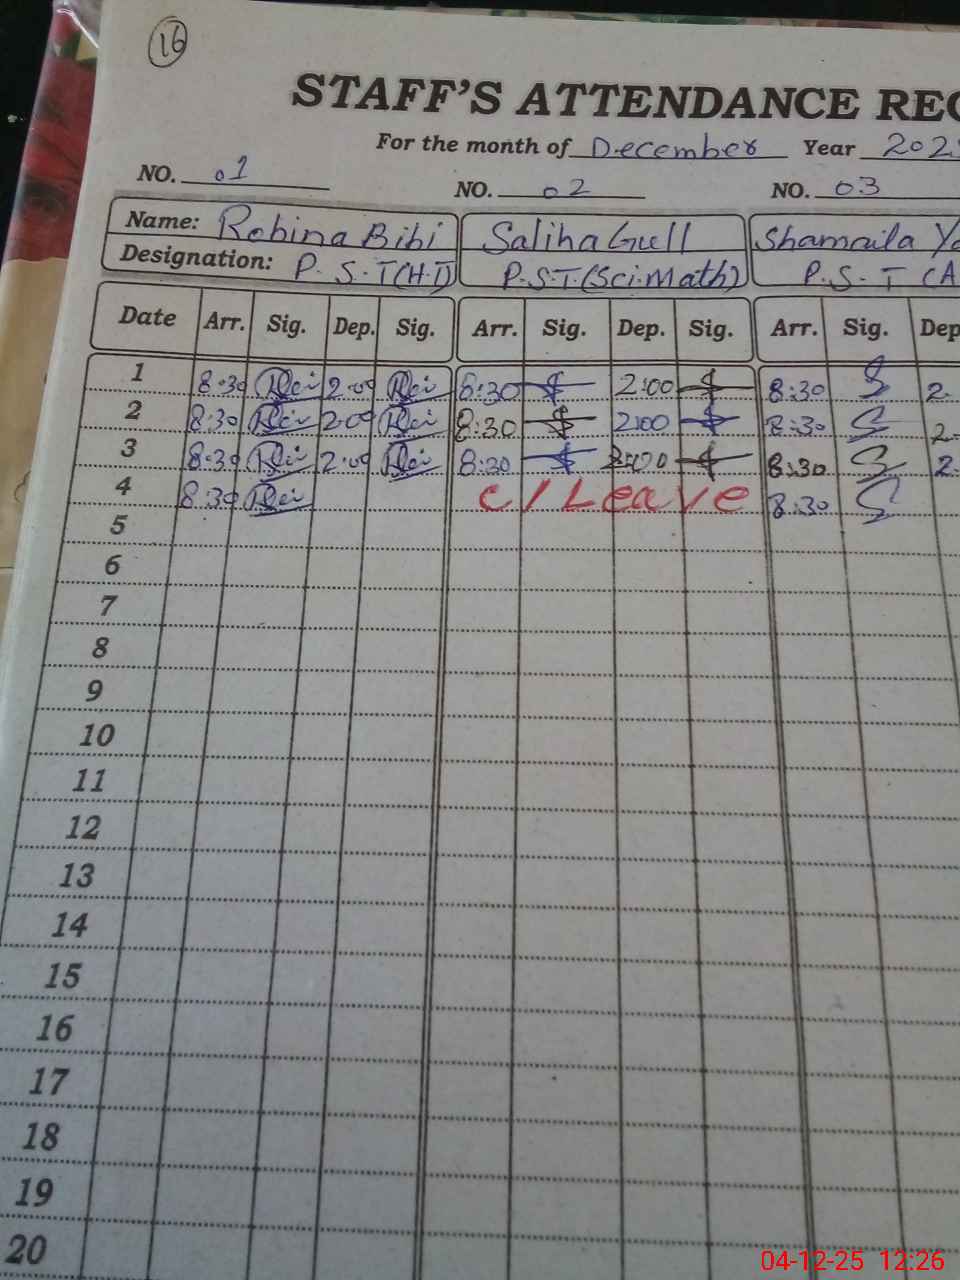 16
STAFF'S ATTENDANCE REC
For the month of December Year 202
NO. 01 NO. 02 NO. 03
Name: Robina Bibi Saliha Gull Shamaila Ya
Designation: P.S.T(H.T) P.S.T.(Sci.Math) P.S.T (A
Date Arr. Sig. Dep. Sig. Arr. Sig. Dep. Sig. Arr. Sig. Dep
1 8:30 2:00 8:30 2:00 8:30 2.
2 8:30 2:00 8:30 2:00 8:30 2.
3 8:30 2:00 8:30 2:00 8:30 2.
4 8:30 C/Leave 8:30
5
6
7
8
9
10
11
12
13
14
15
16
17
18
19
20
04-12-25 12:26